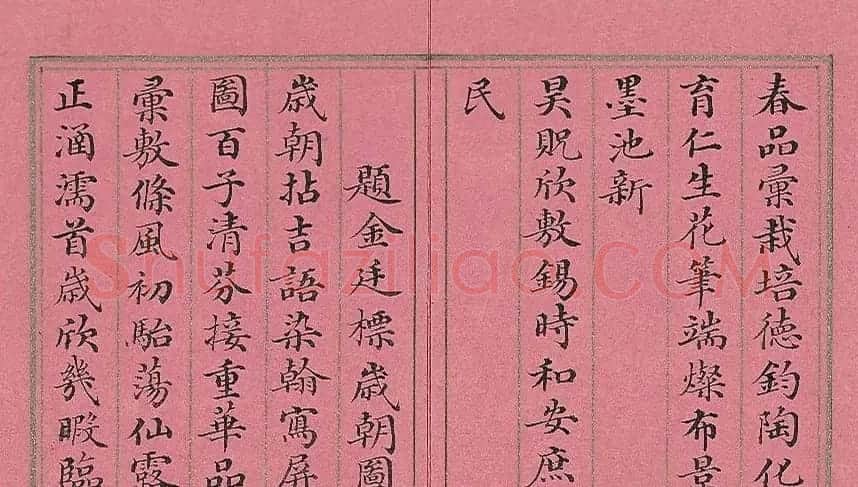 春品彙栽培德鈞陶化
育仁生花筆端燦布景
墨池新
昊貺欣敷錫時和安庶
民
題金廷標歲朝圖
歲朝拈吉語染翰寫屏
圖百子清芬接重華品
彙敷條風初駘蕩仙露
正涵濡首歲欣幾暇臨
Shufaziliao.COM